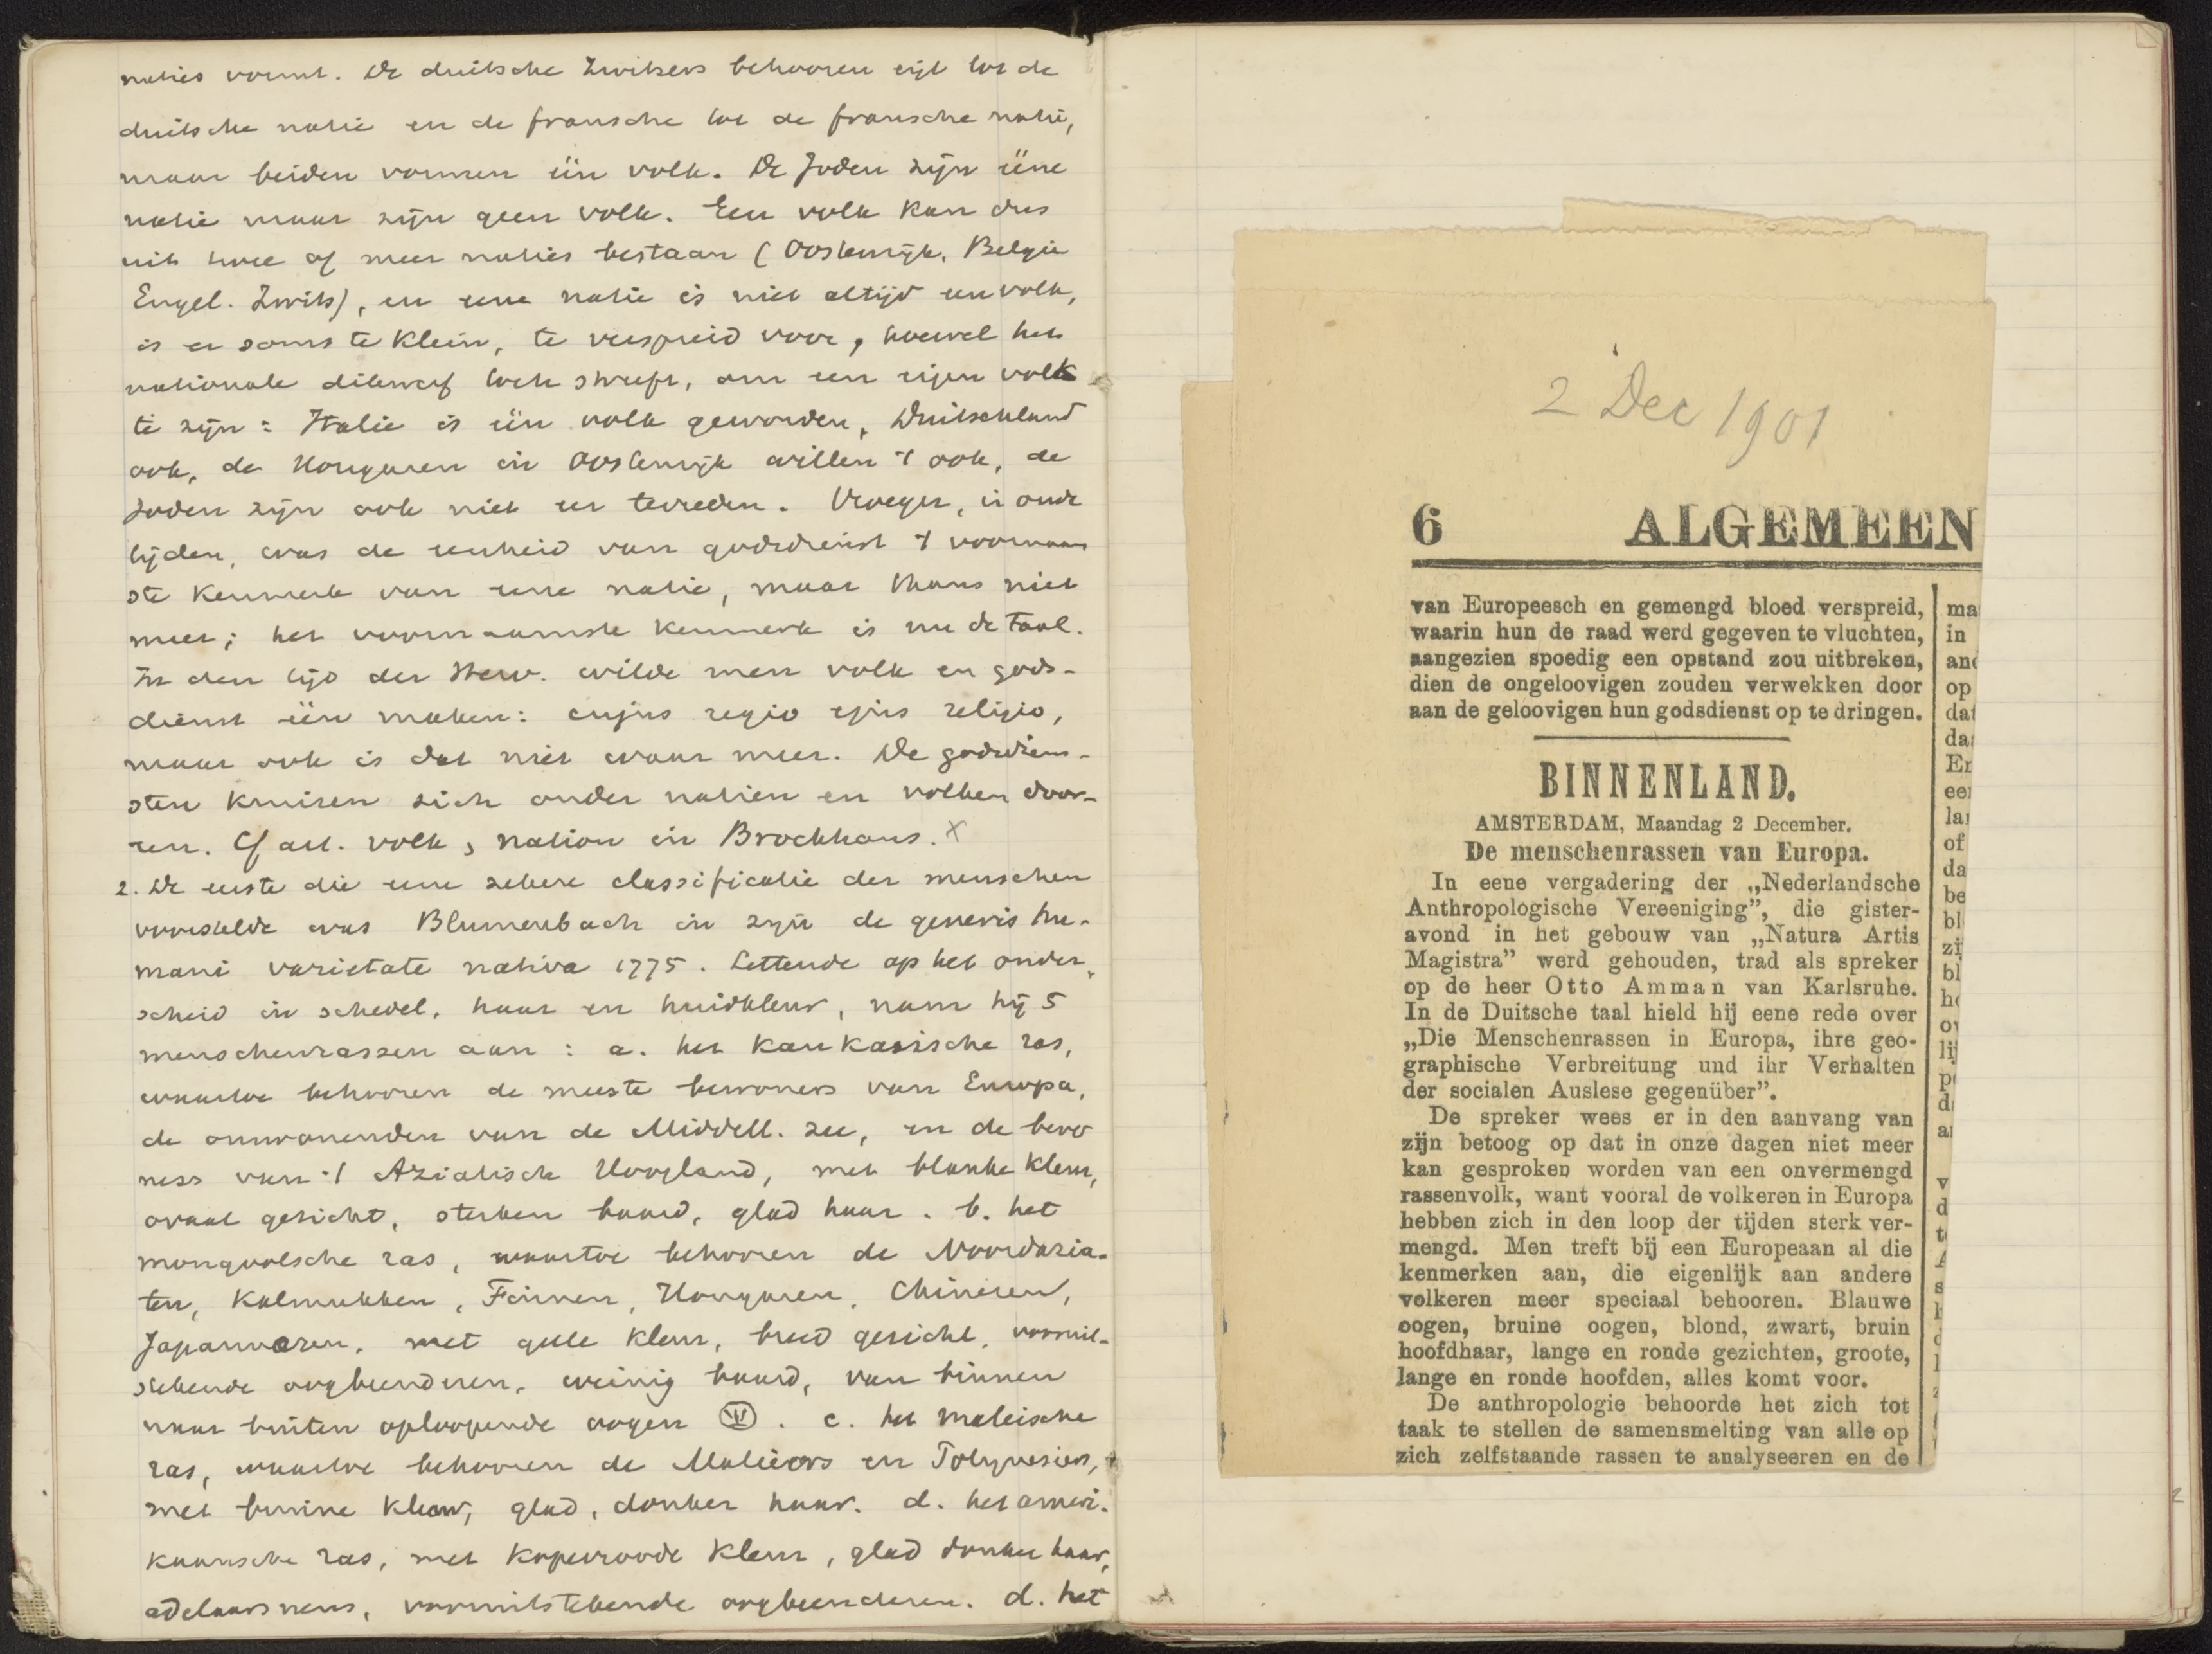 naties vormt. De duitsche Zwitsers behooren eigl tot de
duitsche natie en de fransche tot de fransche natie,
maar beiden vormen één volk. De Joden zijn ééne
natie maar zijn geen volk. Een volk kan dus
uit twee of meer naties bestaan (Oostenrijk, België
Engel. Zwits), en eene natie is niet altijd een volk,
is er soms te klein, te verspreid voor, hoewel het
nationale dikwerf toch streeft, om een eigen volk
te zijn: Italie is één volk geworden, Duitschland
ook, de Hongaren in Oostenrijk willen 't ook, de
Joden zijn ook niet er tevreden. Vroeger, in oude
tijden, was de eenheid van godsdienst 't voornaam
ste kenmerk van eene natie, maar thans niet
meer; het voornaamste kenmerk is nu de taal.
In den tijd der Herv. wilde men volk en gods-
dienst één maken: cujus regio ejus religio,
maar ook is dat niet waar meer. De godsdien-
sten kruisen zich onder natien en volken door-
een. Cf art. volk, nation in Brockhaus. x
2. De eerste die eene zekere classificatie der menschen
voorstelde was Blumenbach in zijn de generis hu-
mani varietate nativa 1775. Lettende op het onder-
scheid in schedel, haar en huidkleur, nam hij 5
menschenrassen aan: a. het kaukasische ras,
waartoe behooren de meeste bewoners van Europa,
de omwonenden van de Middell. zee, en de bewo
ners van 't Aziatisch Hoogland, met blanke kleur,
ovaal gezicht, sterken baard, glad haar. b. het
mongoolsche ras, waartoe behooren de Noordazia-
ten, Kalmukken, Finnen, Hongaren, Chineezen,
Japanneezen, met gele kleur, breed gezicht, vooruit-
stekende oogbeenderen, weinig baard, van binnen
naar buiten oploopende oogen. c. het maleische
ras, waartoe behooren de Maleiers en Polynesiers,
met bruine kleur, glad, donker haar. d. het ameri-
kaansche ras, met koperroode kleur, glad donker haar,
adelaarsneus, vooruitstekende oogbeenderen. d. het
2 Dec 1901
6 ALGEMEEN
van Europeesch en gemengd bloed verspreid,
waarin hun de raad werd gegeven te vluchten,
aangezien spoedig een opstand zou uitbreken,
dien de ongeloovigen zouden verwekken door
aan de geloovigen hun godsdienst op te dringen.
BINNENLAND.
AMSTERDAM, Maandag 2 December.
De menschenrassen van Europa.
In eene vergadering der „Nederlandsche
Anthropologische Vereeniging”, die gister-
avond in het gebouw van „Natura Artis
Magistra” werd gehouden, trad als spreker
op de heer Otto Amman van Karlsruhe.
In de Duitsche taal hield hij eene rede over
„Die Menschenrassen in Europa, ihre geo-
graphische Verbreitung und ihr Verhalten
der socialen Auslese gegenüber”.
De spreker wees er in den aanvang van
zijn betoog op dat in onze dagen niet meer
kan gesproken worden van een onvermengd
rassenvolk, want vooral de volkeren in Europa
hebben zich in den loop der tijden sterk ver-
mengd. Men treft bij een Europeaan al die
kenmerken aan, die eigenlijk aan andere
volkeren meer speciaal behooren. Blauwe
oogen, bruine oogen, blond, zwart, bruin
hoofdhaar, lange en ronde gezichten, groote,
lange en ronde hoofden, alles komt voor.
De anthropologie behoorde het zich tot
taak te stellen de samensmelting van alle op
zich zelfstaande rassen te analyseeren en de